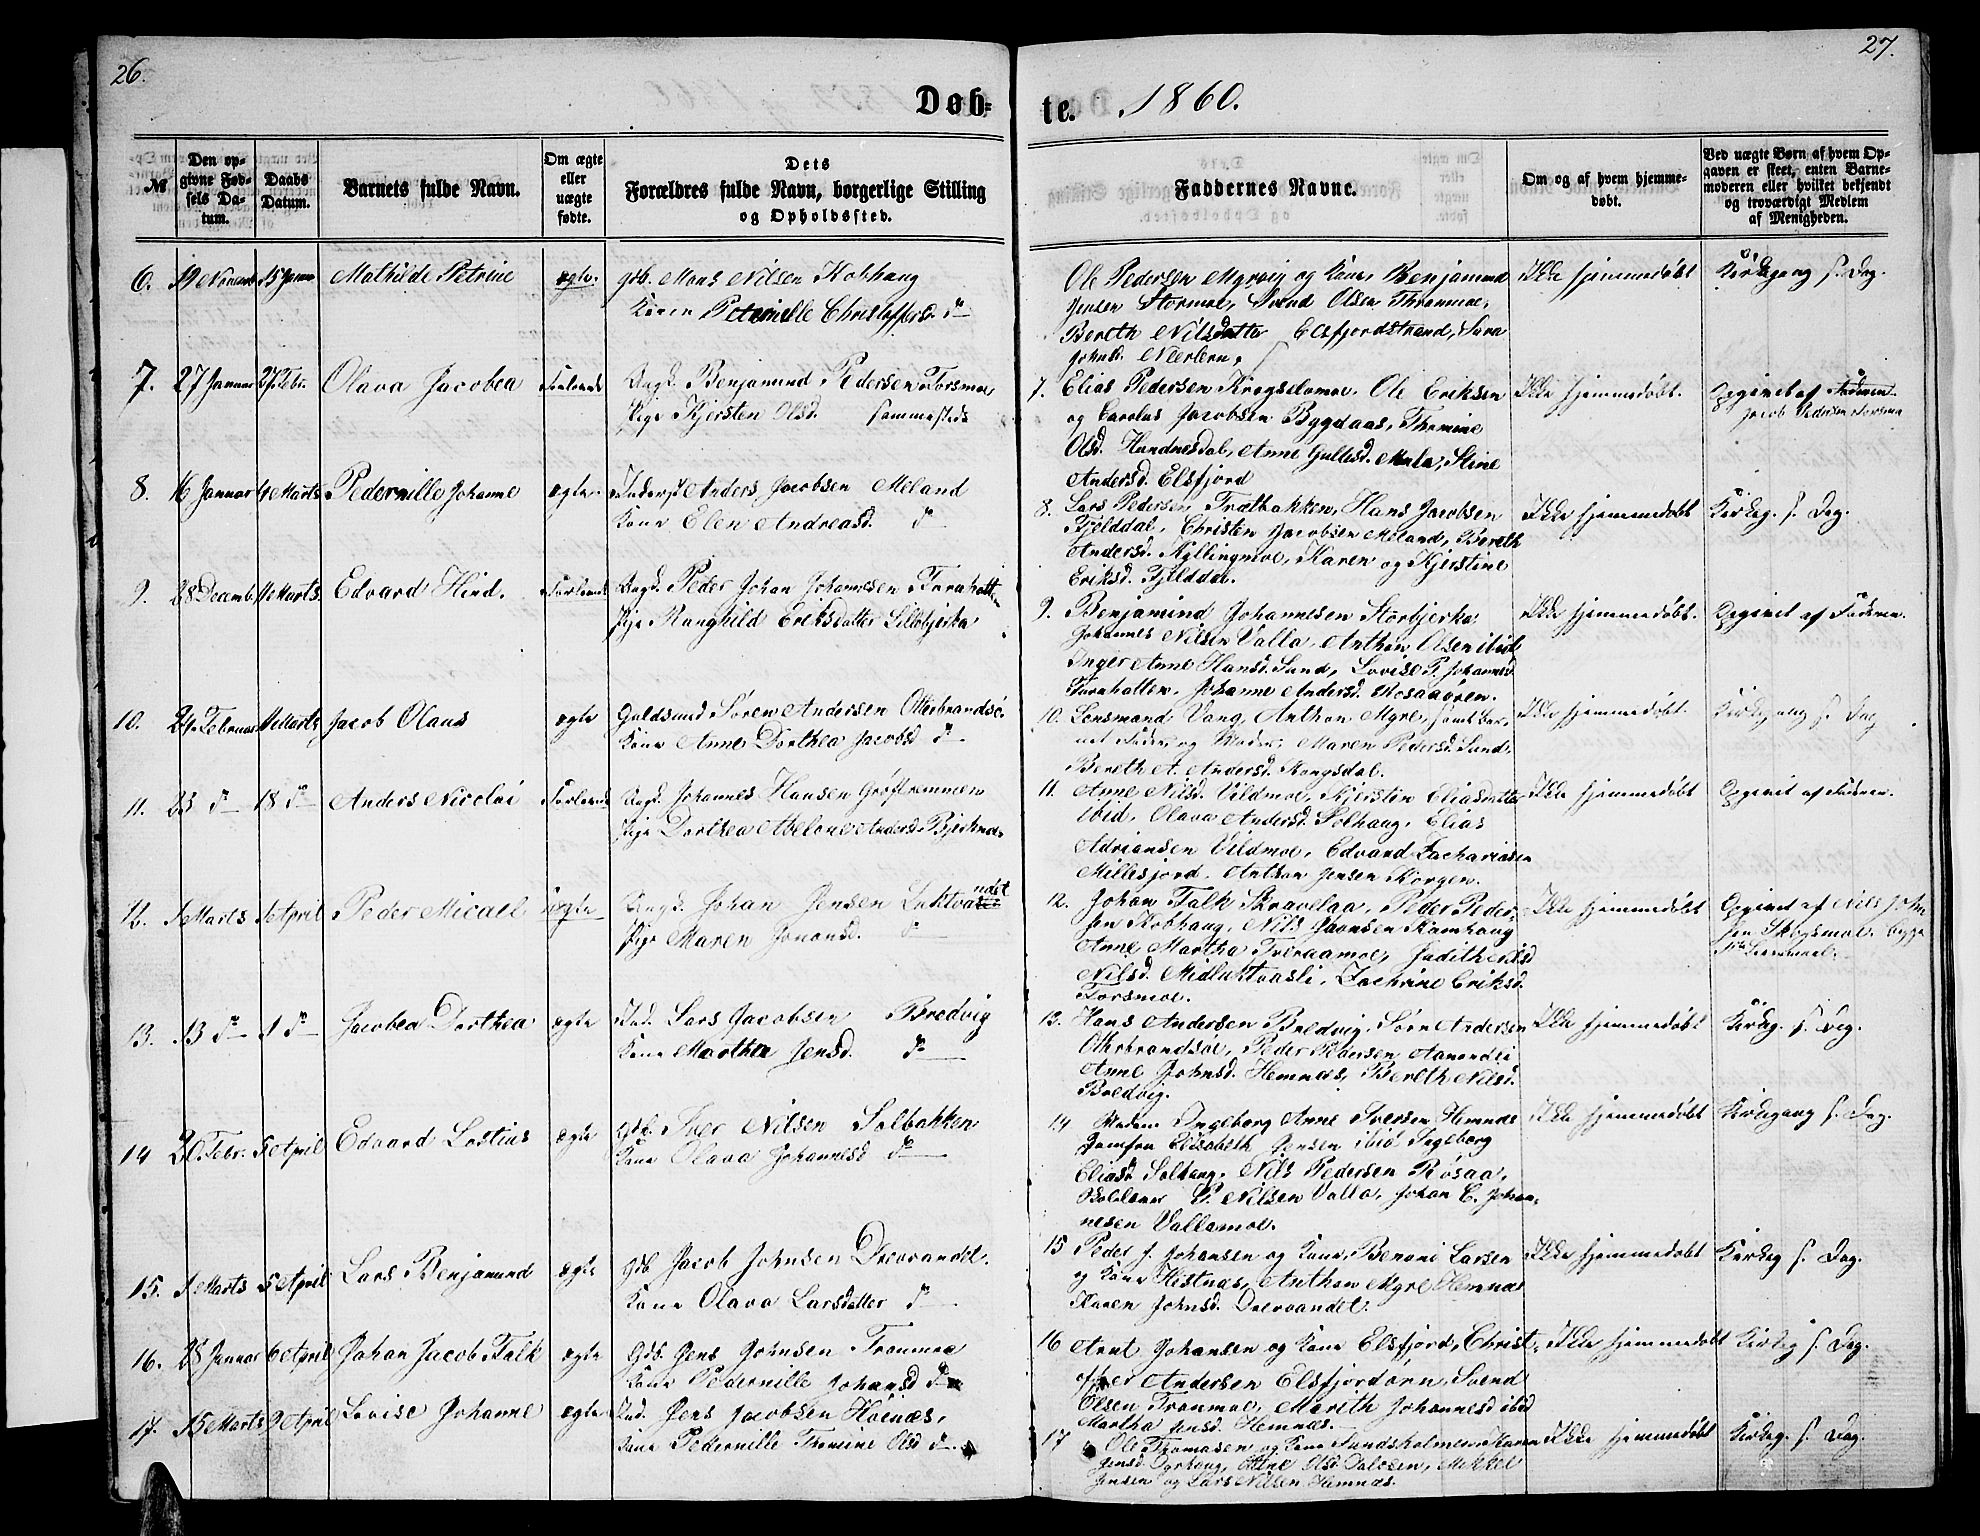 26.
27.
Døb=
te. 1860.
№
Den op-
givne Fød-
sels Da-
tum.
Daabs
Datum.
Barnets fulde Navn.
Om ægte
eller
uægte
fødte.
Dets
Forældres fulde Navn, borgerlige Stilling
og Opholdssted.
Faddernes Navne.
Om og af hvem hjemme-
døbt.
Ved uægte Børn af hvem Op-
gaven er skeet, enten Barne-
moderen eller hvilket bekjendt
og troværdigt Medlem
af Menigheden.
6. 19 Novemb 15 Januar Mathilde Petrine ægte. gdb. Mons Nilsen Kobhaug
Konen Peternille Christoffersd. do
Ole Pedersen Myrvig og Kone, Benjamind
Jensen Stormoe, Svend Olsen Thronmoe,
Bereth Nilsdatter Elsfjordstrand, Sara
Johnsd. Nierleru.
Ikke hjemmedøbt Kirkegang s. Dag.
7. 27 Januar 27 Febr. Olava Jacobea Ungk. Benjamind Pedersen Forsmoe
Pige Kjersten Olsd. sammesteds
7. Elias Pedersen Krogsdamoe. Ole Eriksen
og Carolus Jacobsen Bygdaas, Thomine
Olsd. Hundnesdal, Anne Gullesd. Mula, Stine
Andersd. Elsfjord
Ikke hjemmedøbt Opgivet af Faderen
Jacob Pedersen Forsmo
8. 16 Januar 4 Marts Pedernille Johanne ægte. Inderst Anders Jacobsen Meland
Kone Elen Andreasd. do
8. Lars Pedersen Trætbakken, Hans Jacobsen
Fjelddal, Christen Jacobsen Meland, Bereth
Andersd. Kyllingmoe, Karen og Kjerstine
Eriksd. Fjelddal.
Ikke hjemmedøbt Kirkeg. s. Dag.
9. 28 Decemb. 11 Marts Edvard Hind. Ungk. Peder Johan Johannesen Furuhatten
Pige Ranghild Eriksdatter Lillebjerka
9. Benjamind Johannesen Storbjerka
Johannes Nilsen Valla, Anthon Olsen ibid,
Inger Anne Hansd. Sund, Lovise P. Johannesd
Furuhatten, Johanne Andersd. Rosaaøren.
Ikke hjemmedøbt. Opgivet af Faderen.
10. 24 Februar 11 Marts Jacob Olaus ægte Guldsmed Søren Andersen Otterbrandsø.
Kone Anne Dorthea Jacobsd do
10. Lensmand Vang, Anthon Myre, samt Bar-
net Fader og Moder, Maren Pedersd. Sund,
Bereth A. Andersd. Kongsdal.
Ikke hjemmedøbt. Kirkegang s. Dag
11. 23 do 18 do Anders Nicolai Ungk. Johannes Hansen Grøftremmen
Pige Dorthea Abelone Andersd. Bjerkmoe
11. Anne Nilsd. Vildmoe, Kjersten Eliasdatter
ibid, Olava Andersd. Solhaug, Elias
Adriansen Vildmoe, Edvard Zachariasen
Millesjord. Anthon Jensen Korgen.
Ikke hjemmedøbt Opgivet af Faderen.
12. 1 Marts 1 April Peder Micael Ungk. Johan Jensen Luktvandet
Pige Maren Jonand. do
12. Johan Falk Skravelaa, Peder Peder-
sen Kobhaug, Nils Paaonsen Kamhaug
Anne Martha Tveraamoe, Judith
Nilsd. Midluktvasli, Zachrine Eriksd.
Forsmoe.
Ikke hjemmedøbt Opgivet af Nils John
sen Skogsmoe,
13. 13 do 1 do Jacobea Dorthea ægte Ind. Lars Jacobsen Bredvig
Kone Marthea Jensd. do
13. Hans Andersen Bredvig, Søren Andersen
Otterbrandsøe, Peder Pedersen
Anne Johnsd. Hemnæs, Bereth Nilsd.
Bredvig.
Ikke hjemmedøbt Kirkeg. s. Dag.
14 20 Febr. 5 April Edvard Lostius ægte gdb. Iver Nilsen Solbakken
Kone Olava Johannesd do
14 Madam Ingeborg Anne Iversen Hemnæs
Jomfru Elisabeth Jensen ibid Ingeborg
Eliasd Solhaug, Nils Pedersen Røsaa,
P. Nilsen Valla, Johan C. Johan-
nesen Vallamoe.
Ikke hjemmedøbt Kirkegang s. Dag.
15. 1 Marts 5 April Lars Benjamind ægte gdb Jacob Johnsen Drevvandet.
Kone Olava Larsdatter do
15 Peder J. Johansen og Kone, Benoni Larsen
og Kone Hestnæs, Anthon Myre Hemnæs
Karen Johnsd. Drevvandet.
Ikke hjemmedøbt Kirkeg s. Dag.
16. 28 Januar 6 April Johan Jacob Falk ægte Gdb. Jens Johnsen Tronmoe
Kone Pedernille Johansd do
16 Arnt Johansen og Kone Elsfjord, Christ-
offer Andersen Elsfjordørn, Svend
Olsen Tronmoe, Marith Johannesd ibid
Martha Jensd. Hemnæs.
Ikke hjemmedøbt Kirkeg s. Dag.
17. 15 Marts 9 April Lovise Johanne ægte Ind. Jens Jacobsen Høinæs,
Kone Pedernille Thomine Olsd do
17 Ole Thomasen og Kone Sundsholmen, Karen
Jensd. Dyrhaug, Oline Olsd. Dalosen, Mikkel
Jensen og Lars Nilsen Hemnæs.
Ikke hjemmedøbt Kirkeg. s. Dag.